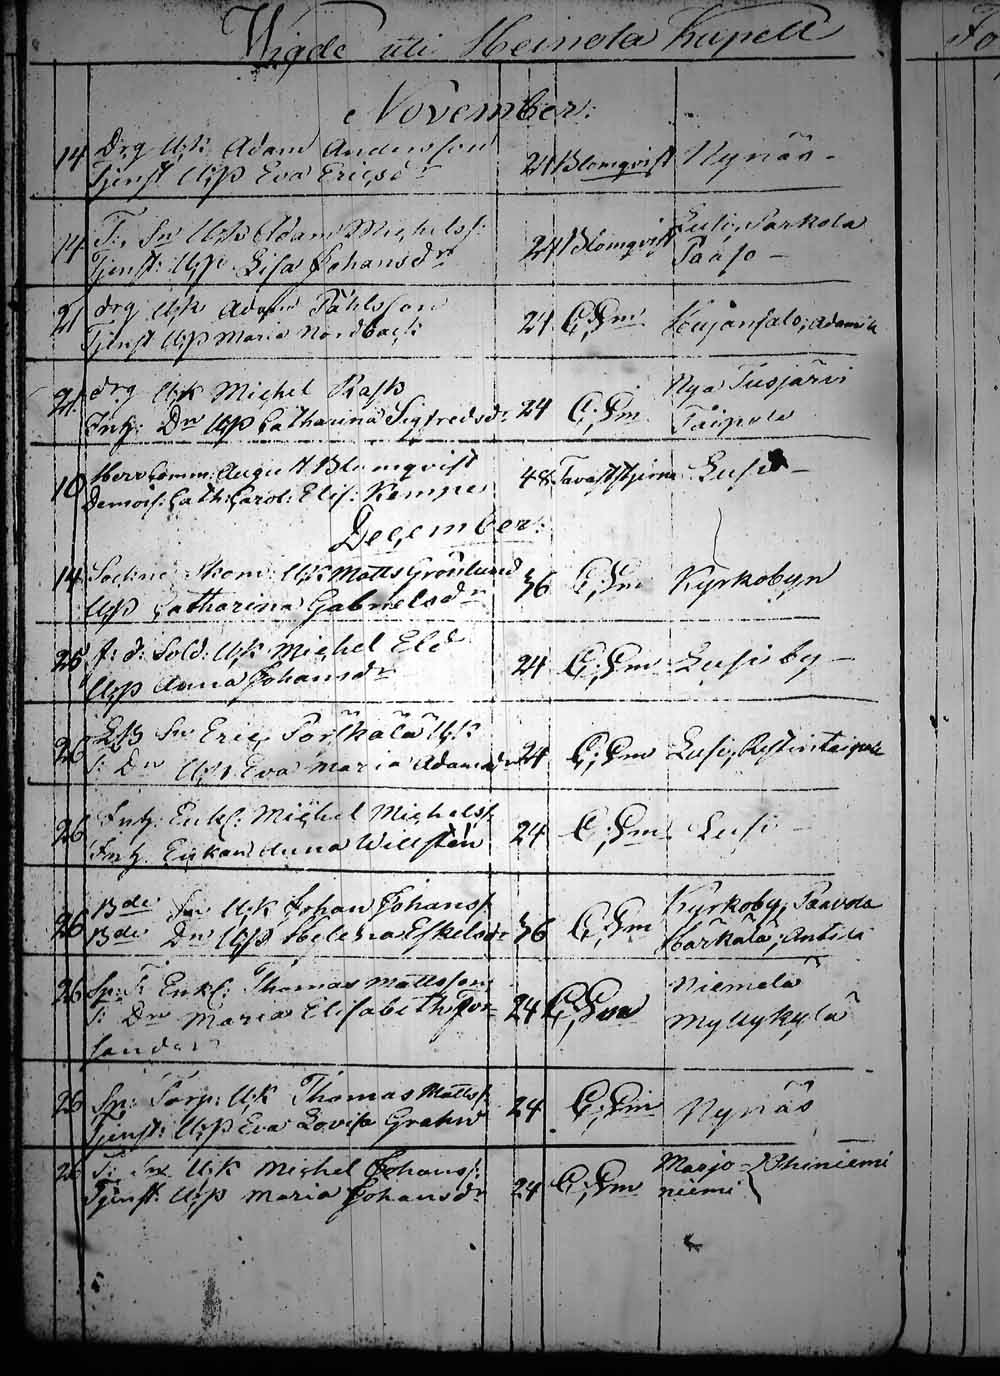 Wigde uti Heinola Kapell
November:
14 Drg Ugk Adam Andersson
Tjenst Ugp Eva Ericsdr 24 Blomqvist Nynäs -
14 T: Sn Ugk Adam Michelss:
Tjenst: Ugp Lisa Johansdr 24 Blomqvist Lusi, Parkola
Paaso -
21 drg Ugk Adam Påhlsson
Tjenst Ugp Maria Nordback: 24 C; Em Adamila
21 drg Ugk Michel Rask
Inh: Dn Ugp Catharina Sigfredsdr 24 C; Em Nya Tusjärvi
Taipale
10 Herr Comm: August Blomqvist
Demois: Cath: Carol: Elis: Kempe 48 Tavaststjerna Lusi -
December:
14 Sockne Skom: Ugk Matts Grönlund
Ugp Catharina Gabrielsdr 36 C; Em Kyrkobyn
25 f: d: Sold: Ugk Michel Eld
Ugp Anna Johansdr 24 C; Em Lusi by -
26 Sn Eric Ugk
T: Dn Ugp Eva Maria Adamsdr 24 C; Em Lusi,
26 Inh: Enkl: Michel Michelss:
Inh. Enkan Anna Willstén 24 C; Em Lusi -
26 Bde Sn Ugk Johan Johanss:
Bde Dn Ugp Helena Eskelsdr 36 C; Em Kyrkoby, Paavola
Härkälä, Anttila
26 Sp: T: Enkl: Thomas Mattsson
T: Dn Maria Elisabeth For-
sander 24 C; Em Niemelä
Myllykylä
26 Sp: Torp: Ugk Thomas Mattss:
Tjenst: Ugp Eva Lovisa Grahn 24 C; Em Nynäs
26 T: Sn Ugk Michel Johanss:
Tjenst: Ugp Maria Johansdr 24 C; Em Marjo-
niemi { Ohiniemi
Fö